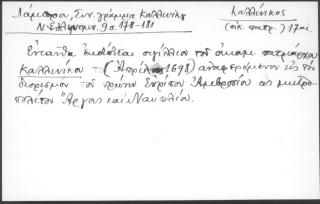 Λάμπρου, Συν. γράμμα Καλλινίκου
Ν. Ελληνομν. 9 σ. 178-181
Καλλίνικος
(οἰκ. πατρ.) 17 αἰ.
Ἐνταῦθα ἐκδίδεται σιγίλλιον τοῦ οἰκουμ. πατριάρχου
Καλλινίκου (Ἀπρίλ. 1698) ἀναφερόμενον εἰς τὸν
διορισμὸν τοῦ πρώην Εὐρίπου Ἀμβροσίου ὡς μητρο-
πολίτου Ἄργους καὶ Ναυπλίου.